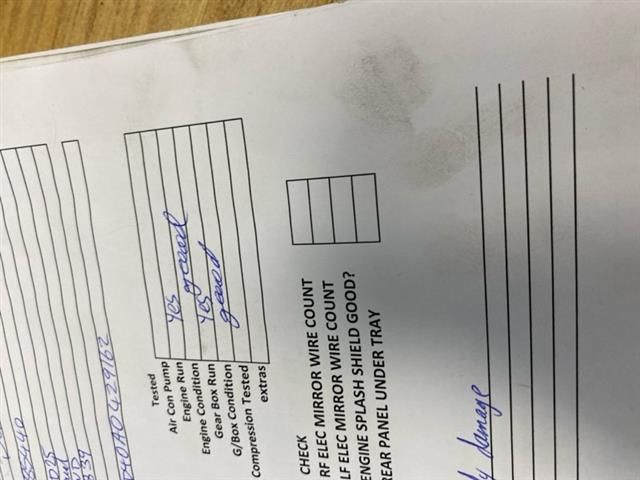 35440
D25
339
D40A0429162
Tested
Air Con Pump
Engine Run Yes
Engine Condition good
Gear Box Run Yes
G/Box Condition good
Compression Tested
extras
CHECK
RF ELEC MIRROR WIRE COUNT
LF ELEC MIRROR WIRE COUNT
ENGINE SPLASH SHIELD GOOD?
REAR PANEL UNDER TRAY
damage